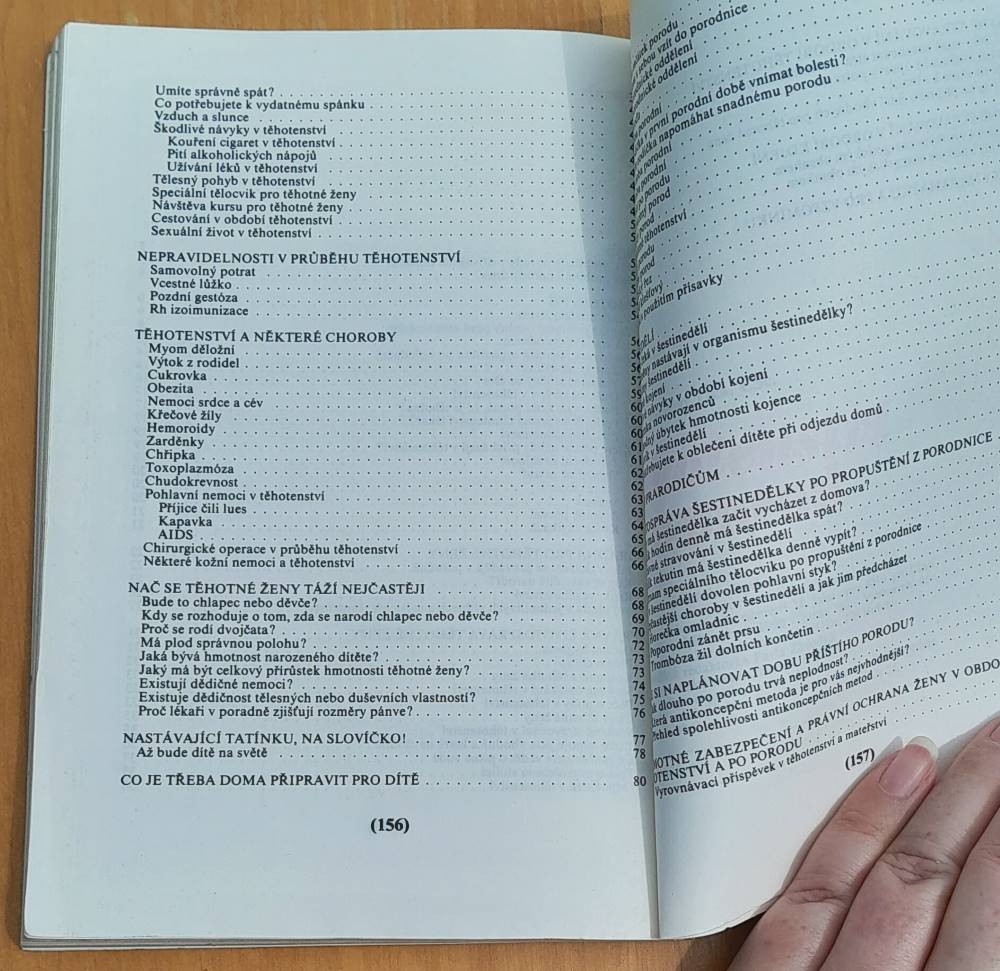 Umíte správně spát?
Co potřebujete k vydatnému spánku
Vzduch a slunce
Škodlivé návyky v těhotenství
Kouření cigaret v těhotenství
Pití alkoholických nápojů
Užívání léků v těhotenství
Tělesný pohyb v těhotenství
Speciální tělocvik pro těhotné ženy
Návštěva kursu pro těhotné ženy
Cestování v období těhotenství
Sexuální život v těhotenství
NEPRAVIDELNOSTI V PRŮBĚHU TĚHOTENSTVÍ
Samovolný potrat
Vcestné lůžko
Pozdní gestóza
Rh izoimunizace
TĚHOTENSTVÍ A NĚKTERÉ CHOROBY
Myom děložní
Výtok z rodidel
Cukrovka
Obezita
Nemoci srdce a cév
Křečové žíly
Hemoroidy
Zarděnky
Chřipka
Toxoplazmóza
Chudokrevnost
Pohlavní nemoci v těhotenství 63
Příjice čili lues 63
Kapavka 64
AIDS 65
Chirurgické operace v průběhu těhotenství 66
Některé kožní nemoci a těhotenství 66
NAČ SE TĚHOTNÉ ŽENY TÁŽÍ NEJČASTĚJI 68
Bude to chlapec nebo děvče? 68
Kdy se rozhoduje o tom, zda se narodí chlapec nebo děvče? 69
Proč se rodí dvojčata? 70
Má plod správnou polohu? 72
Jaká bývá hmotnost narozeného dítěte? 73
Jaký má být celkový přírůstek hmotnosti těhotné ženy? 73
Existují dědičné nemoci? 74
Existuje dědičnost tělesných nebo duševních vlastností? 75
Proč lékaři v poradně zjišťují rozměry pánve? 76
NASTÁVAJÍCÍ TATÍNKU, NA SLOVÍČKO! 77
Až bude dítě na světě 78
CO JE TŘEBA DOMA PŘIPRAVIT PRO DÍTĚ 80
(156)
porodu
sebou vzít do porodnice
oddělení
oddělení
porodní
v první porodní době vnímat bolesti?
napomáhat snadnému porodu
porodní
porodní
po porodu
porod
porod
těhotenství
porodu
porod
použitím přísavky
v šestinedělí
nastávají v organismu šestinedělky?
šestinedělí
kojení
návyky v období kojení
novorozenců
úbytek hmotnosti kojence
v šestinedělí
k oblečení dítěte při odjezdu domů
PRARODIČŮM
ŠESTINEDĚLKY PO PROPUŠTĚNÍ Z PORODNICE
má šestinedělka začít vycházet z domova?
hodin denně má šestinedělka spát?
stravování v šestinedělí
tekutin má šestinedělka denně vypít?
speciálního tělocviku po propuštění z porodnice
v šestinedělí dovolen pohlavní styk?
choroby v šestinedělí a jak jim předcházet
Horečka omladnic
Poporodní zánět prsu
Trombóza žil dolních končetin
SI NAPLÁNOVAT DOBU PŘÍŠTÍHO PORODU?
dlouho po porodu trvá neplodnost?
antikoncepční metoda je pro vás nejvhodnější?
Přehled spolehlivosti antikoncepčních metod
ZABEZPEČENÍ A PRÁVNÍ OCHRANA ŽENY V
A PO PORODU
Vyrovnávací příspěvek v těhotenství a mateřství
(157)